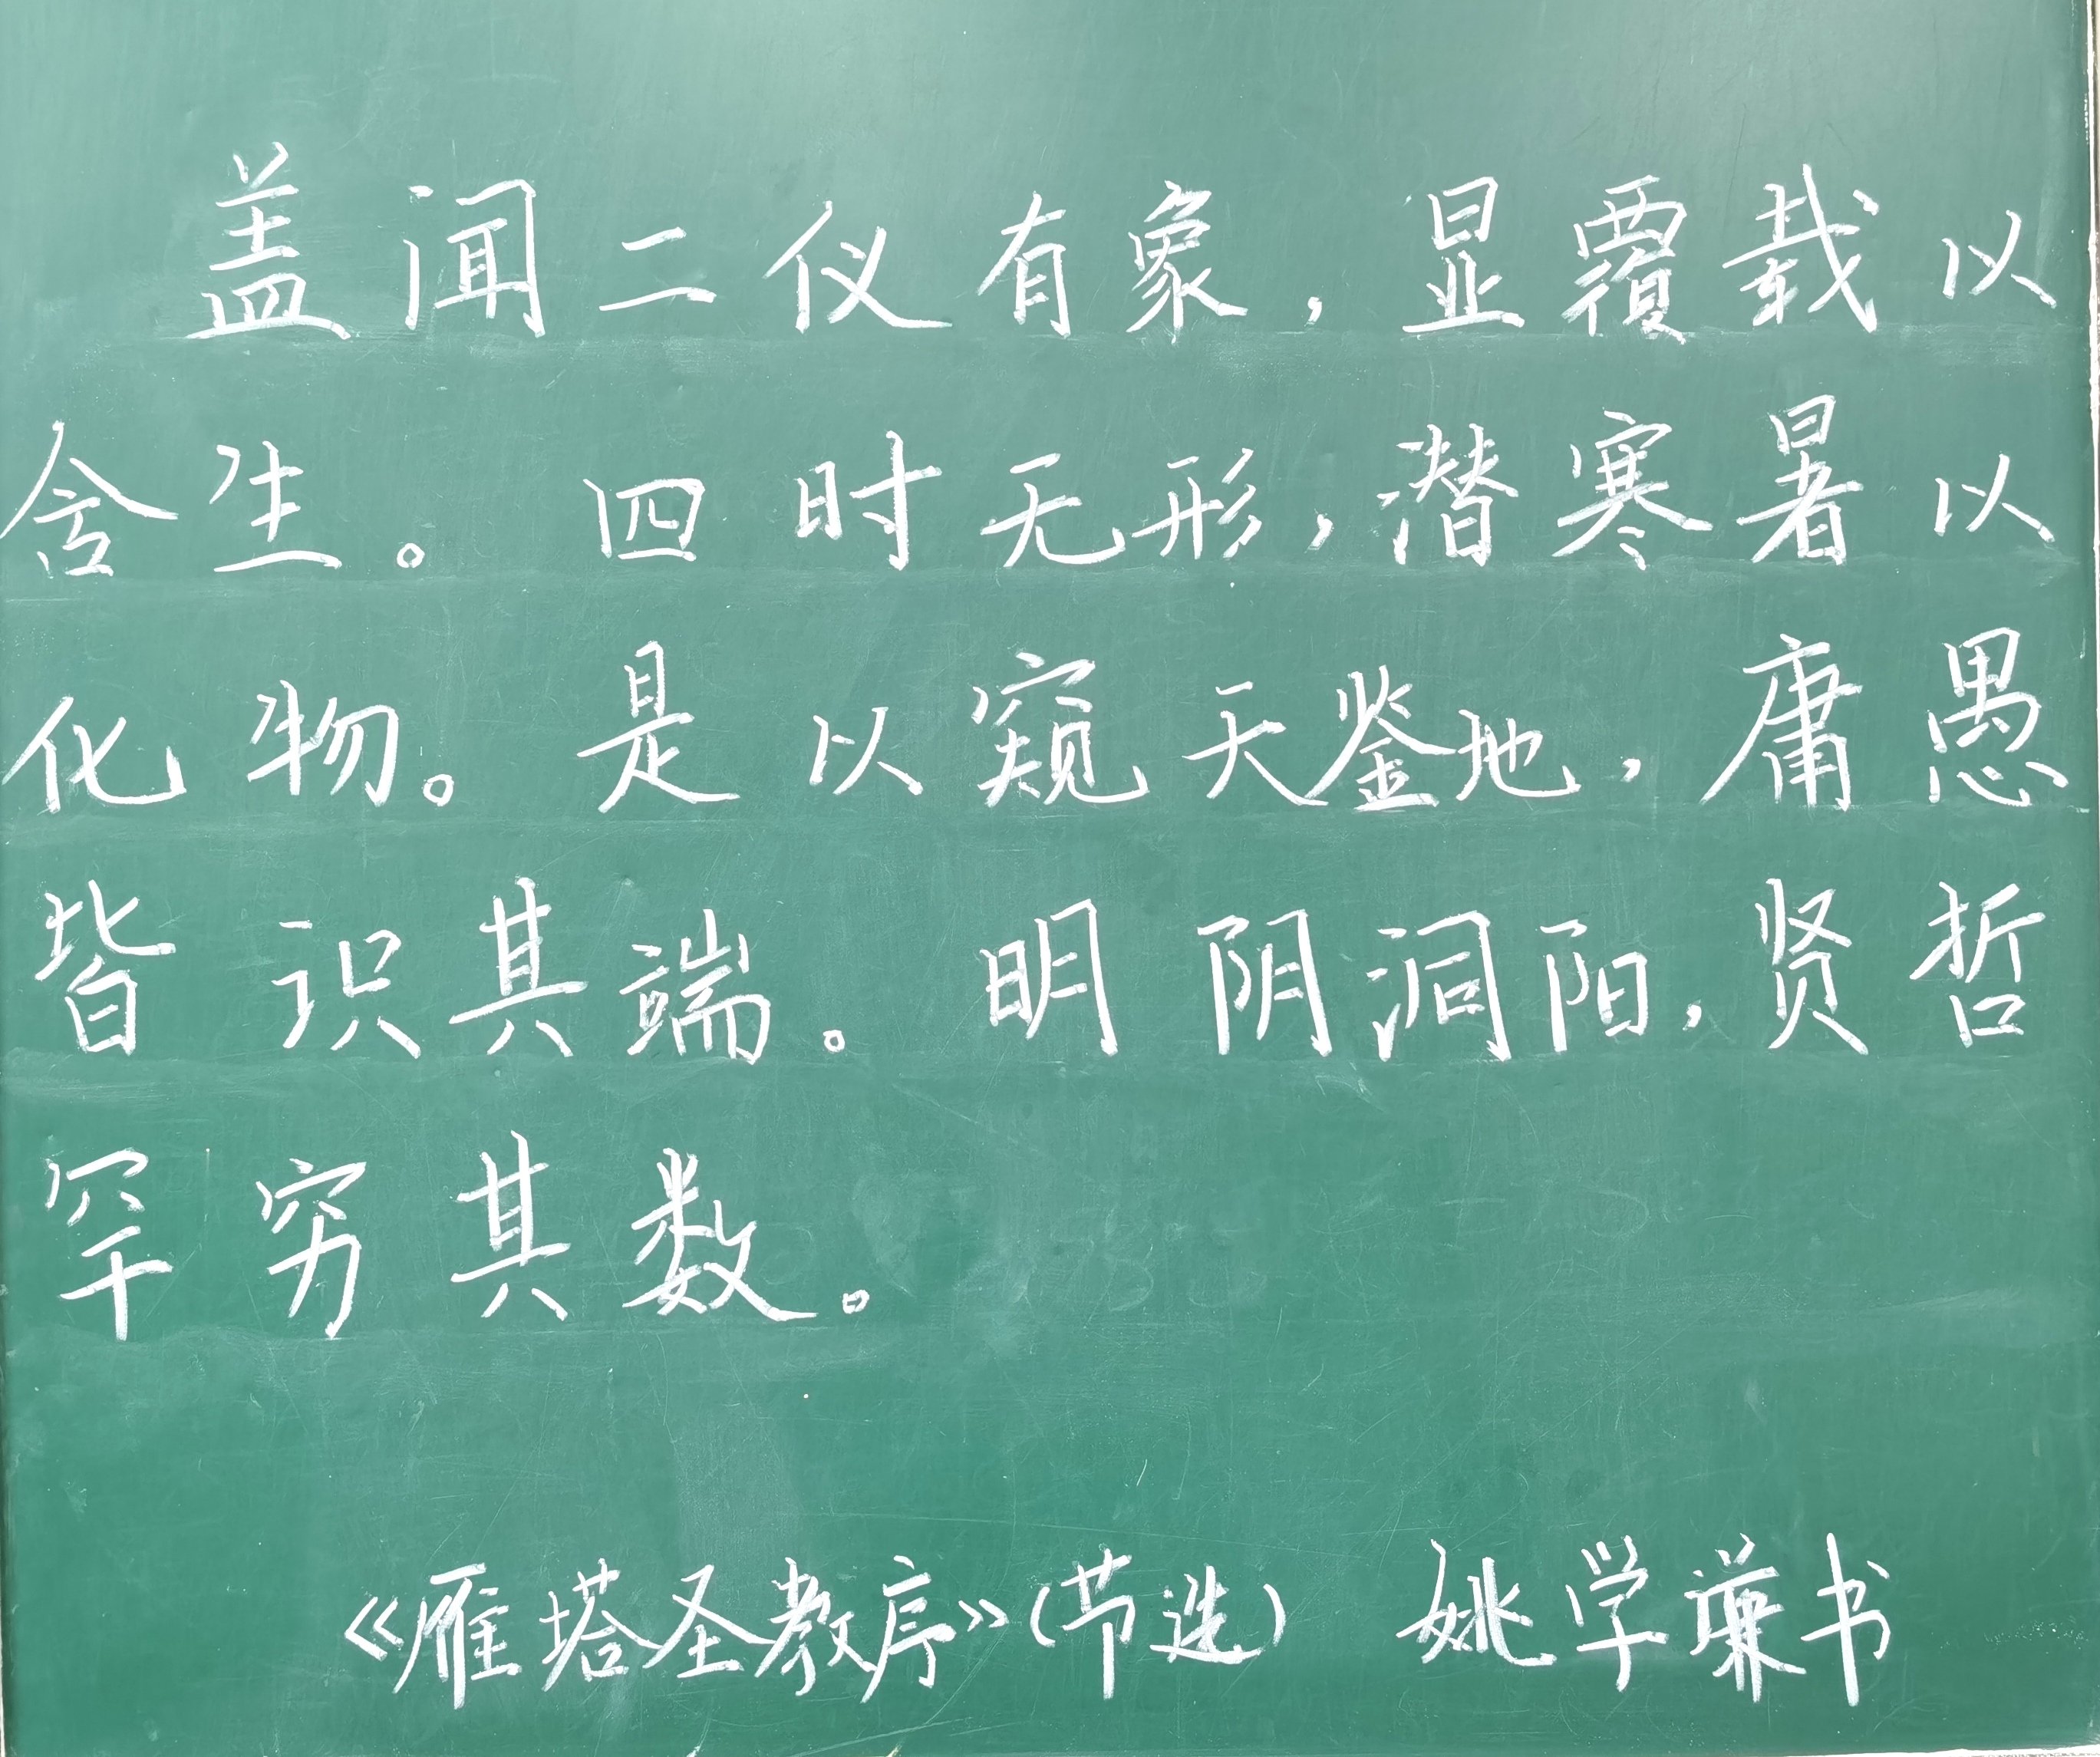 盖闻二仪有象，显覆载以
含生。四时无形，潜寒暑以
化物。是以窥天鉴地，庸愚
皆识其端。明阴洞阳，贤哲
罕穷其数。
《雁塔圣教序》（节选） 姚学谦书